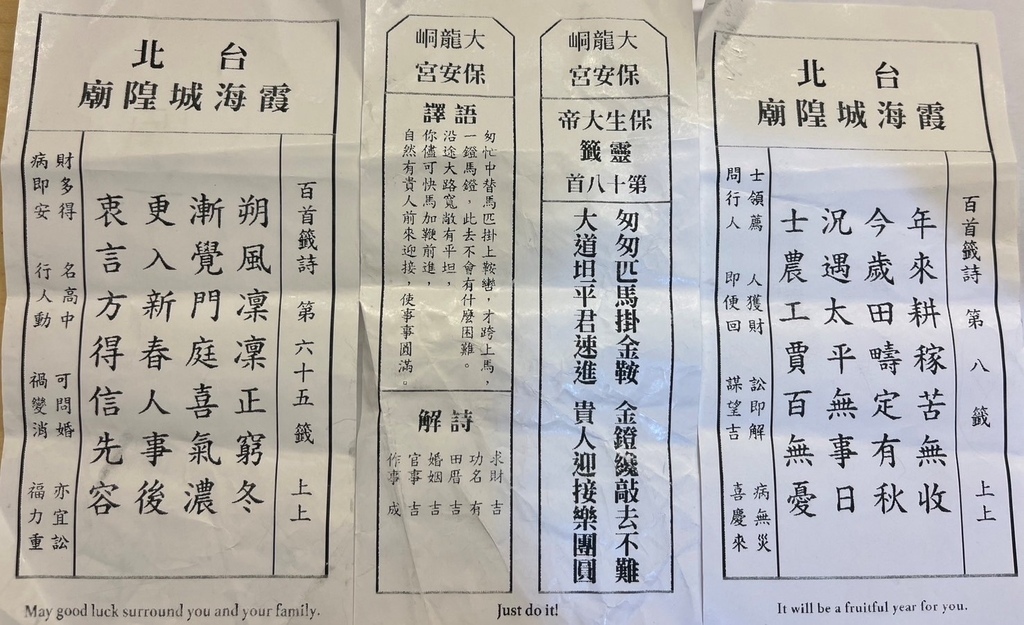 台北
霞海城隍廟
百首籤詩 第六十五籤 上上
朔風凜凜正窮冬
漸覺門庭喜氣濃
更入新春人事後
衷言方得信先容
財多得 名高中 可問婚 亦宜訟
病即安 行人動 禍變消 福力重
May good luck surround you and your family.
大龍峒
保安宮
保生大帝
靈籤
第十八首
匆匆匹馬掛金鞍 金鐙纔敲去不難
大道坦平君速進 貴人迎接樂團圓
大龍峒
保安宮
語譯
匆忙中替馬匹掛上鞍轡，才跨上馬，
一鐙馬鐙，此去不會有什麼困難。
沿途大路寬敞有平坦，
你儘可快馬加鞭前進，
自然有貴人前來迎接，使事事圓滿。
詩解
求財 吉
功名 有
田曆 吉
婚姻 吉
官事 吉
作事 成
Just do it!
台北
霞海城隍廟
百首籤詩 第八籤 上上
年來耕稼苦無收
今歲田疇定有秋
況遇太平無事日
士農工賈百無憂
士領薦 人獲財 訟即解 病無災
問行人 即便回 謀望吉 喜慶來
It will be a fruitful year for you.